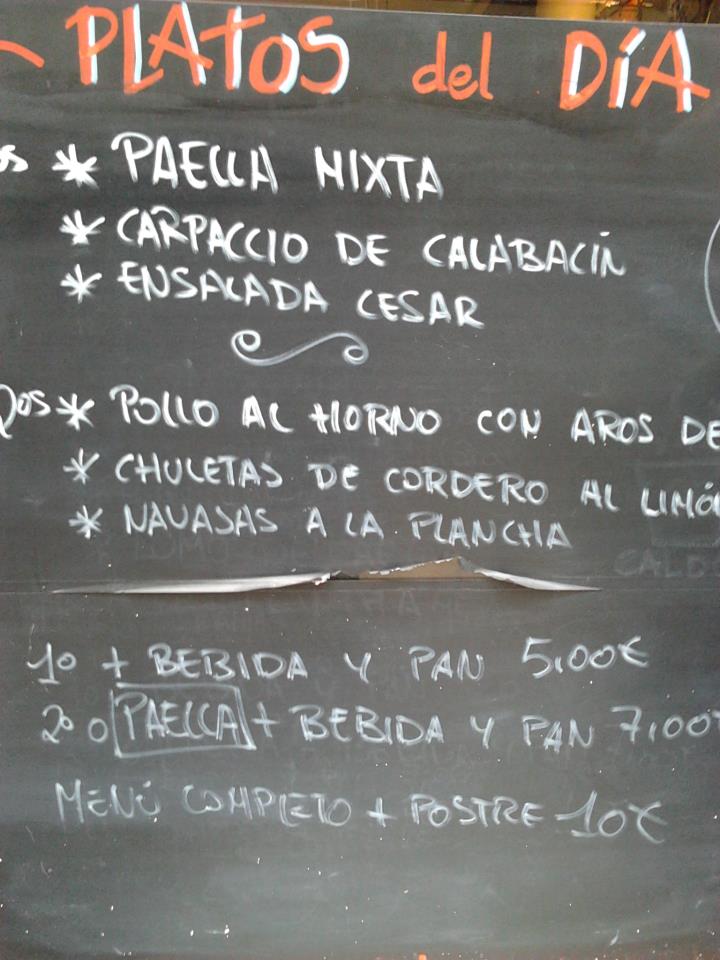 PLATOS del DÍA
os * PAELLA MIXTA
* CARPACCIO DE CALABACÍN
* ENSALADA CESAR
DOS * POLLO AL HORNO CON AROS DE
* CHULETAS DE CORDERO AL LIMÓ
* NAVASAS A LA PLANCHA
CALD
1º + BEBIDA Y PAN 5,00€
2º O PAELLA + BEBIDA Y PAN 7,00
MENÚ COMPLETO + POSTRE 10€